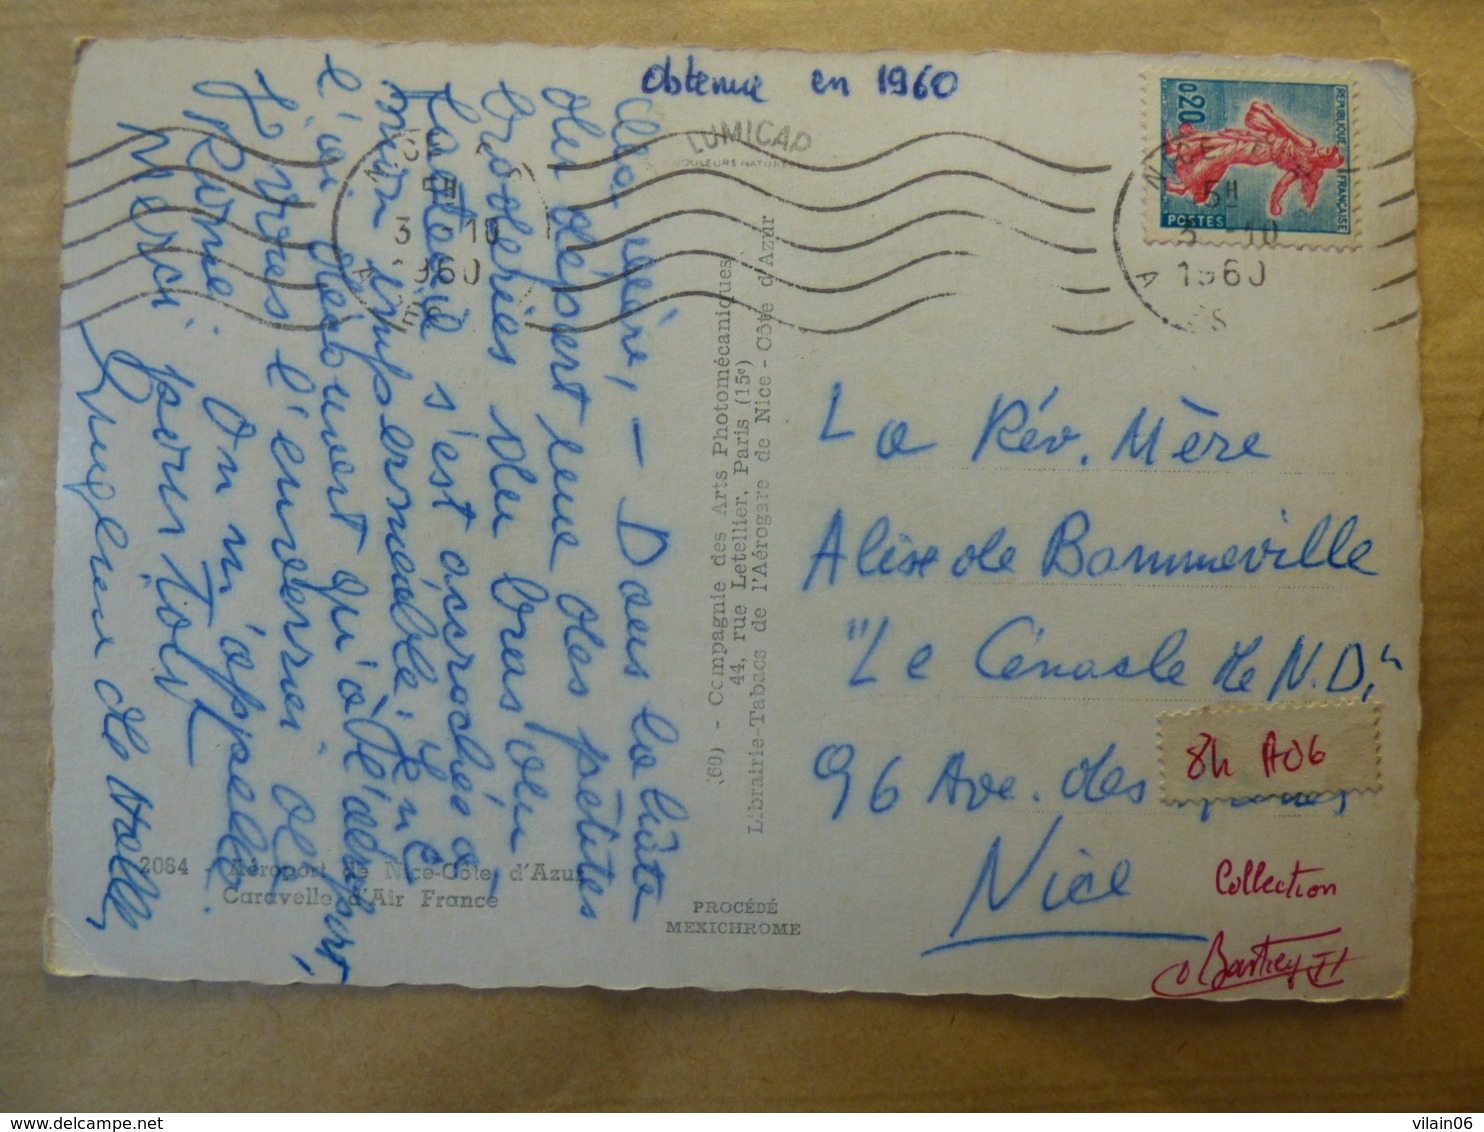 Obtenue en 1960
LUMICAP
COULEURS NATURELLES
REPUBLIQUE FRANÇAISE
0,20
POSTES
5H
3 -10
1960
5H
3 -10
1960
Ma Mère, — Dans la hâte
du départ une des petites
broderies du bras du
fauteuil s'est accrochée à
mon imperméable. Je ne
l'ai découvert qu'à l'aéroport,
Je vous l'enverrai de
Rome. On m'appelle.
Merci pour tout
(60) - Compagnie des Arts Photomécaniques
44, rue Letellier, Paris (15e)
Librairie-Tabacs de l'Aérogare de Nice - Côte d'Azur
La Rév. Mère
Alix de Bonneville
"Le Cénacle de N.D."
96 Ave. des
Nice
8h A06
Collection
2064 - Aéroport de Nice-Côte d'Azur
Caravelle d'Air France
PROCÉDÉ
MEXICHROME
delcampe.net
vilain06